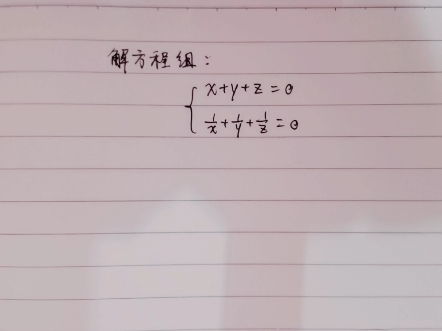 解方程组：
x+y+z=0
1/x+1/y+1/z=0